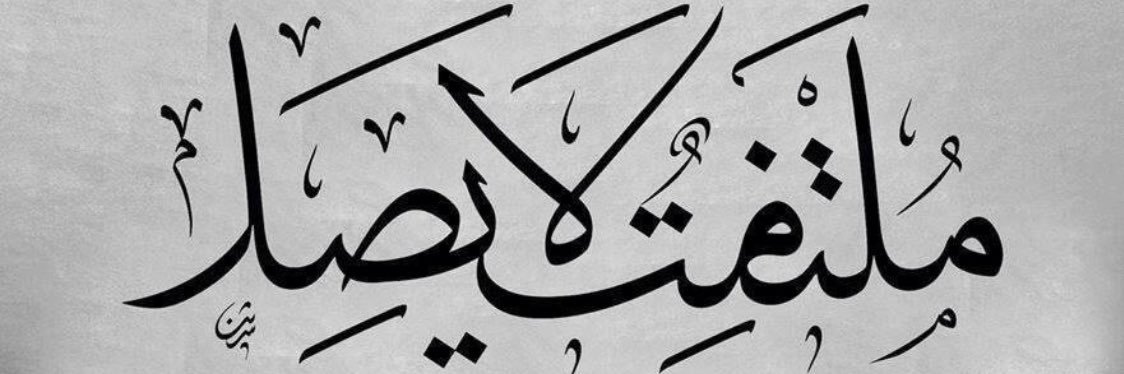 مُلْتَفِتٌ لَا يَصِل